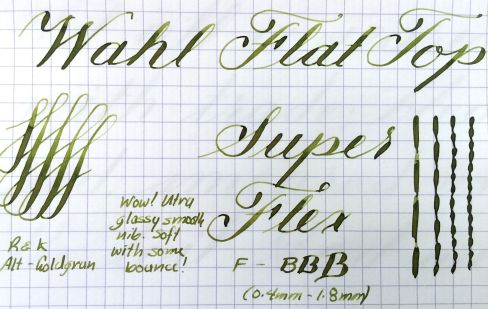 Wahl Flat Top
Super
Flex
F - BBB
(0.4mm - 1.8mm)
Wow! Ultra
glassy smooth
nib. Soft
with some
bounce!
R & K
Alt - Goldgrun